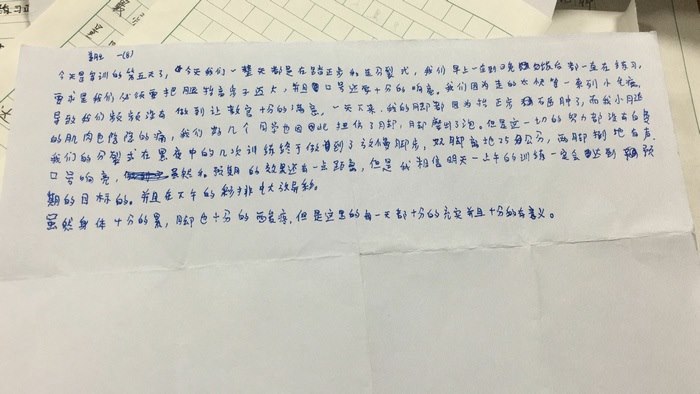 一(8)
今天是军训的第五天了,今天我们一整天都是在踏正步的连分裂式,我们早上一直到晚饭后都一直在练习,
要求是我们必须要把腿踢高步子迈大,并且口号还要十分的响亮。我们因为走的太快等一系列小毛病,
导致我们频频没有做到让教官十分的满意,一天下来,我的脚都因为踏正步而肿了,而我小腿
的肌肉也隐隐的痛,我们好几个同学也因此扭伤了脚,脚磨出了泡。但是这一切的努力都没有白费
我们的分裂式在黑夜中的几次训练终于做到了放慢脚步,双脚离地25公分,两脚制地有声
口号响亮,虽然和预期的效果还有一点距离,但是我相信明天一上午的训练一定会达到预
期的目标的。并且在下午的
虽然身体十分的累,脚也十分的酸疼,但是这里的每一天都十分的充实并且十分的有意义。